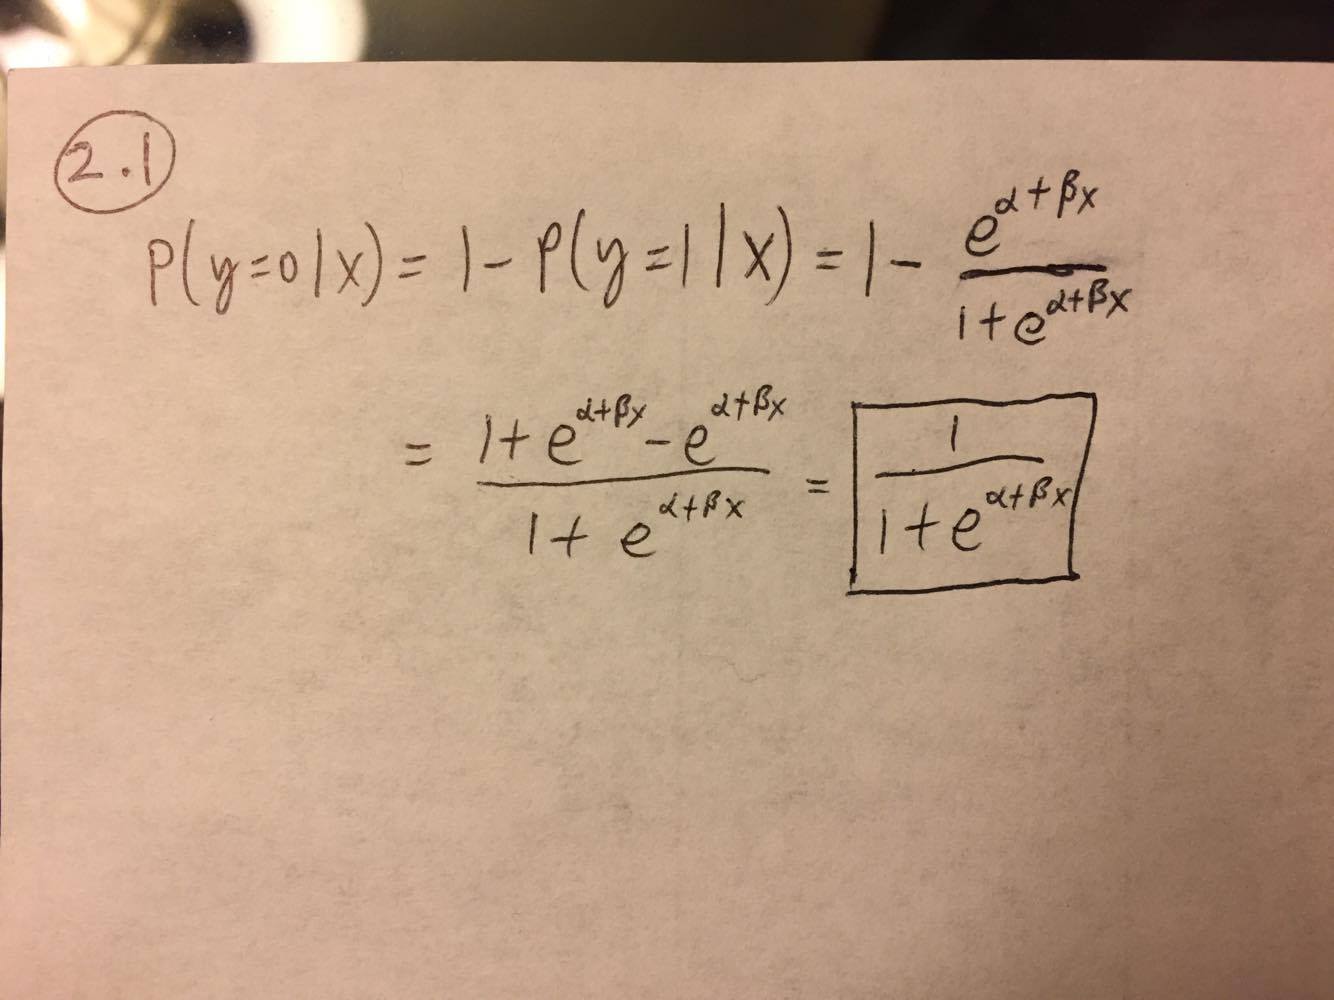 2.1
P(y=0|x) = 1 - P(y=1|x) = 1 - \frac{e^{α+βx}}{1+e^{α+βx}}
= \frac{1+e^{α+βx}-e^{α+βx}}{1+e^{α+βx}} = \frac{1}{1+e^{α+βx}}